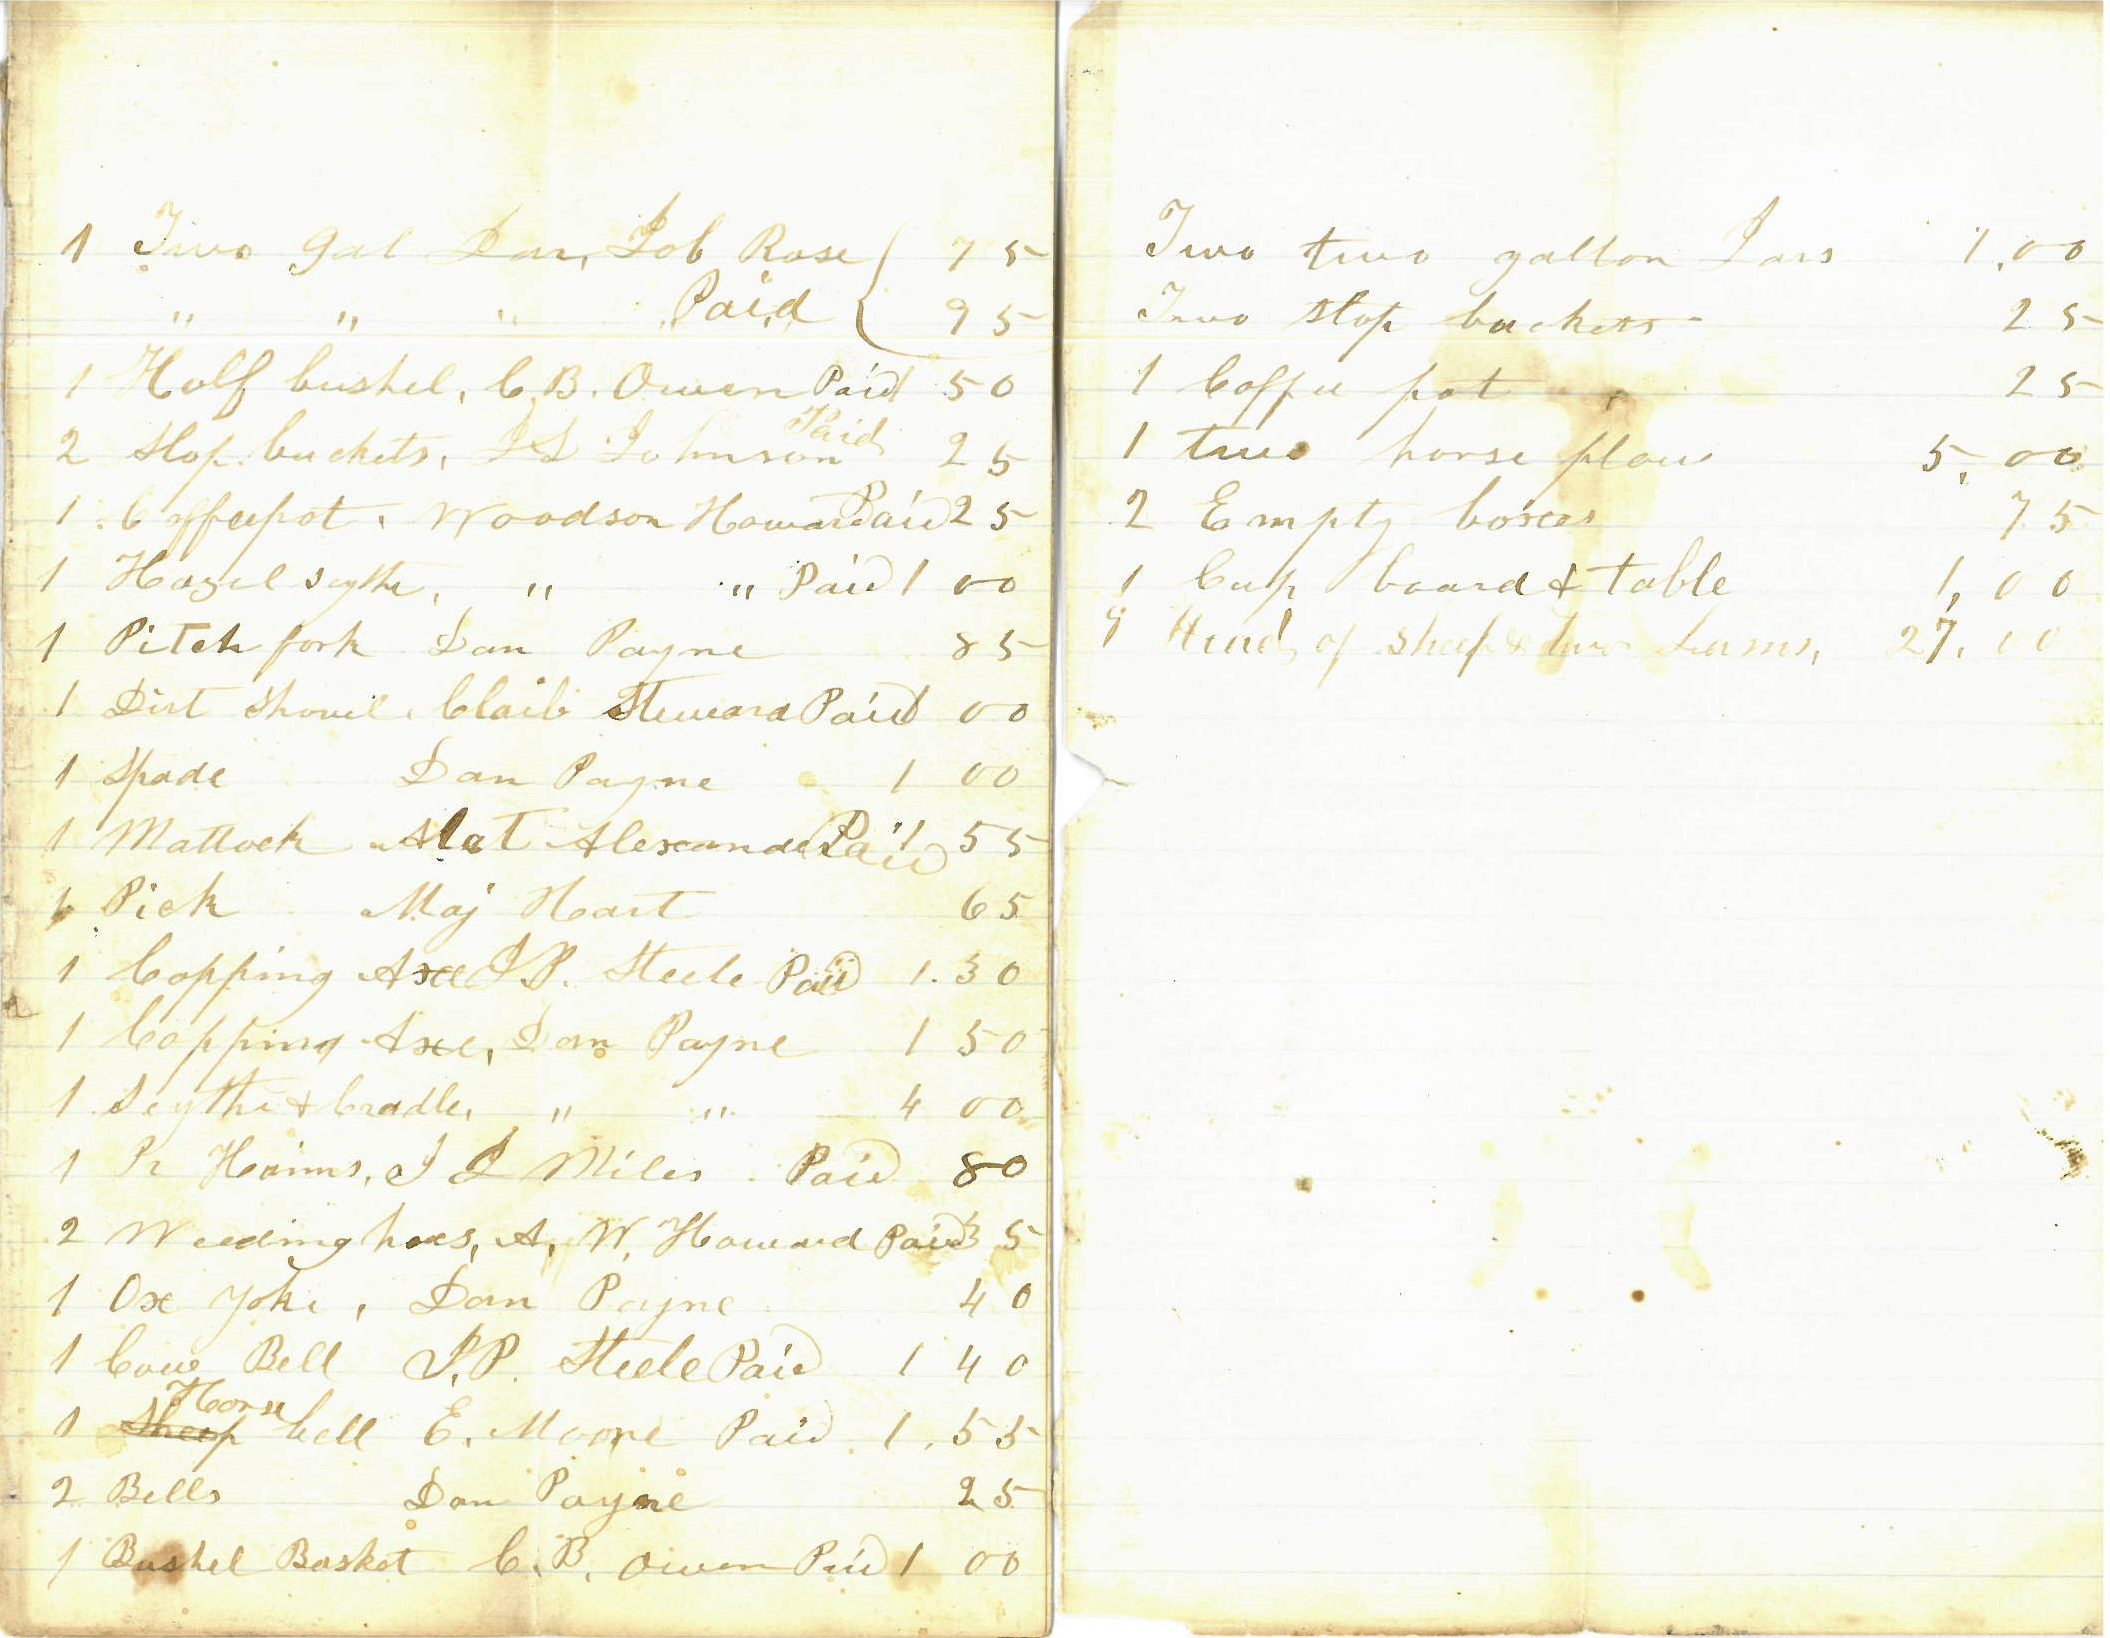 1 Two gal Jar, Job Rose 75
" " " Paid 95
1 Half bushel, C. B. Owen Paid 50
2 Slop buckets, J L Johnson Paid 25
1 Coffeepot, Woodson Howard Paid 25
1 Hazel scythe, " " Paid 1 00
1 Pitch fork Dan Payne 85
1 Dirt Shovel, Claib Steward Paid 1 00
1 Spade Dan Payne 1 00
1 Mattock Alexander Paid 1 55
1 Pick Maj Heart 65
1 Copping Axe J P. Steele Paid 1.30
1 Copping Axe, Dan Payne 1 50
1 Scythe & Cradle, " " 4 00
1 Pr Haims, J L Miles Paid 80
2 Weeding hoes, A. W. Howard Paid 35
1 Oxe Yoke, Dan Payne 40
1 Cow Bell J. P. Steele Paid 1 40
1 Sheep Horse bell E. Moore Paid 1.55
2 Bells Dan Payne 25
1 Bushel Basket C. B. Owen Paid 1 00
Two two gallon Jars 1.00
Two Slop buckets 25
1 Coffee pot 25
1 two horse plow 5.00
2 Empty boxes 75
1 Cup board & table 1,00
9 Head of sheep & two 27.00